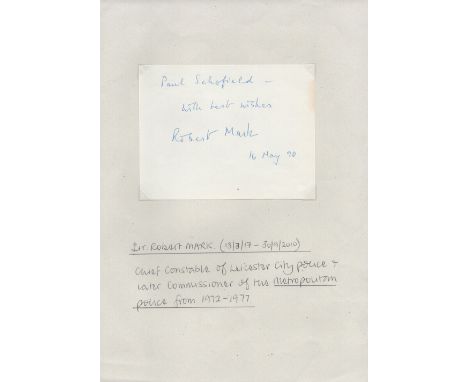 Paul Schofield –
with best wishes
Robert Mark
16 May 90
Sir ROBERT MARK. (13/3/17 – 30/9/2010)
Chief Constable of Leicester City police +
later Commissioner of the Metropolitan
police from 1972–1977